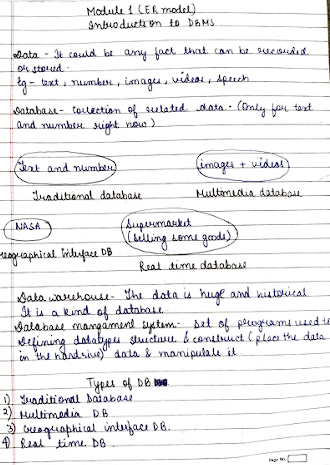 Module 1 (ER model)
Introduction to DBMS
Data - It could be any fact that can be recorded
or stored.
Eg - text, number, images, videos, speech
Database - Collection of related data. (Only for text
and number right now)
Text and number
images + videos
Traditional database
Multimedia database
NASA
Supermarket
(Selling some goods)
Geographical Interface DB
Real time database
Data warehouse - The data is huge and historical
It is a kind of database
Database mangament system - Set of programs used to
Defining datatypes structure & construct (place the data
in the hardrive) data & manipulate it.
Types of DB
1) Traditional Database
2) Multimedia DB
3) Geographical interface DB.
4) Real time DB.
Page No.